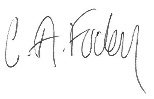 C. A. Foden